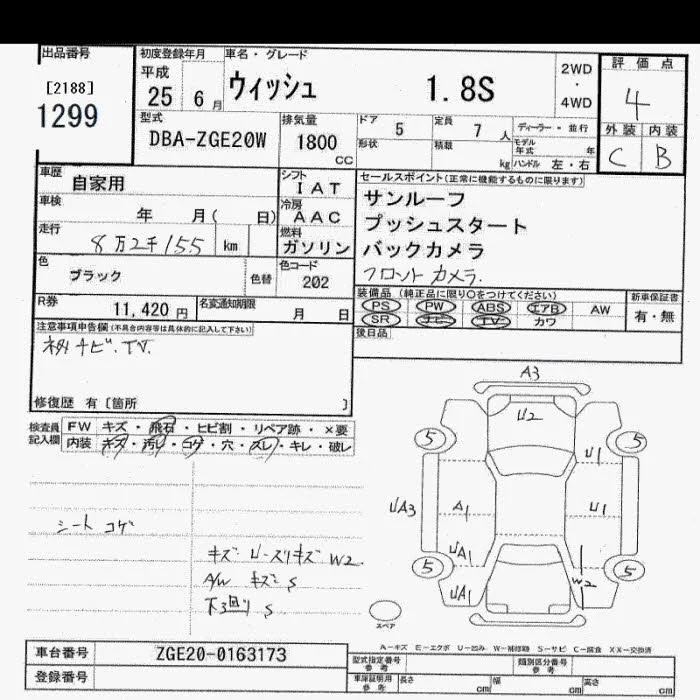 出品番号
[2188]
1299
初度登録年月 車名・グレード
平成
25 6月 ウィッシュ 1.8S
2WD
・
4WD
評価点
4
外装 内装
C B
型式
DBA-ZGE20W
排気量
1800
CC
ドア 5
定員 7 人
ディーラー・並行
形状
積載 kg
モデル年式 年
ハンドル 左・右
車歴
自家用
シフト
IAT
車検
年 月( 日)
冷房
AAC
走行
8万2千155 km
燃料
ガソリン
色
ブラック 色替
色コード
202
R券
11,420 円
名変通知期限
月 日
セールスポイント(正常に機能するものに限ります)
サンルーフ
プッシュスタート
バックカメラ
フロントカメラ.
装備品(純正品に限り○をつけてください)
PS PW ABS エアB AW
SR ナビ TV カワ
新車保証書
有・無
後日品
注意事項申告欄(不具合内容等は具体的に記入して下さい)
ナビ.TV.
修復歴 有[箇所 ]
検査員
記入欄
FW キズ・飛石・ヒビ割・リペア跡・×要
内装 キズ・汚れ・コゲ・穴・スレ・キレ・破レ
シート コゲ
キズ U-スリキズ W2
A/W キズ S
下回り S
A3
U2
5
5
U1
UA3
A1
U1
UA1
5
5
W2
UA1
スペア
A-キズ E-エクボ U-凹み W-補修跡 S-サビ C-腐食 XX-交換済
車台番号 ZGE20-0163173
登録番号
型式指定番号
参考
類別区分番号
参考
車庫証明用
参考
長さ cm 幅 cm 高さ cm